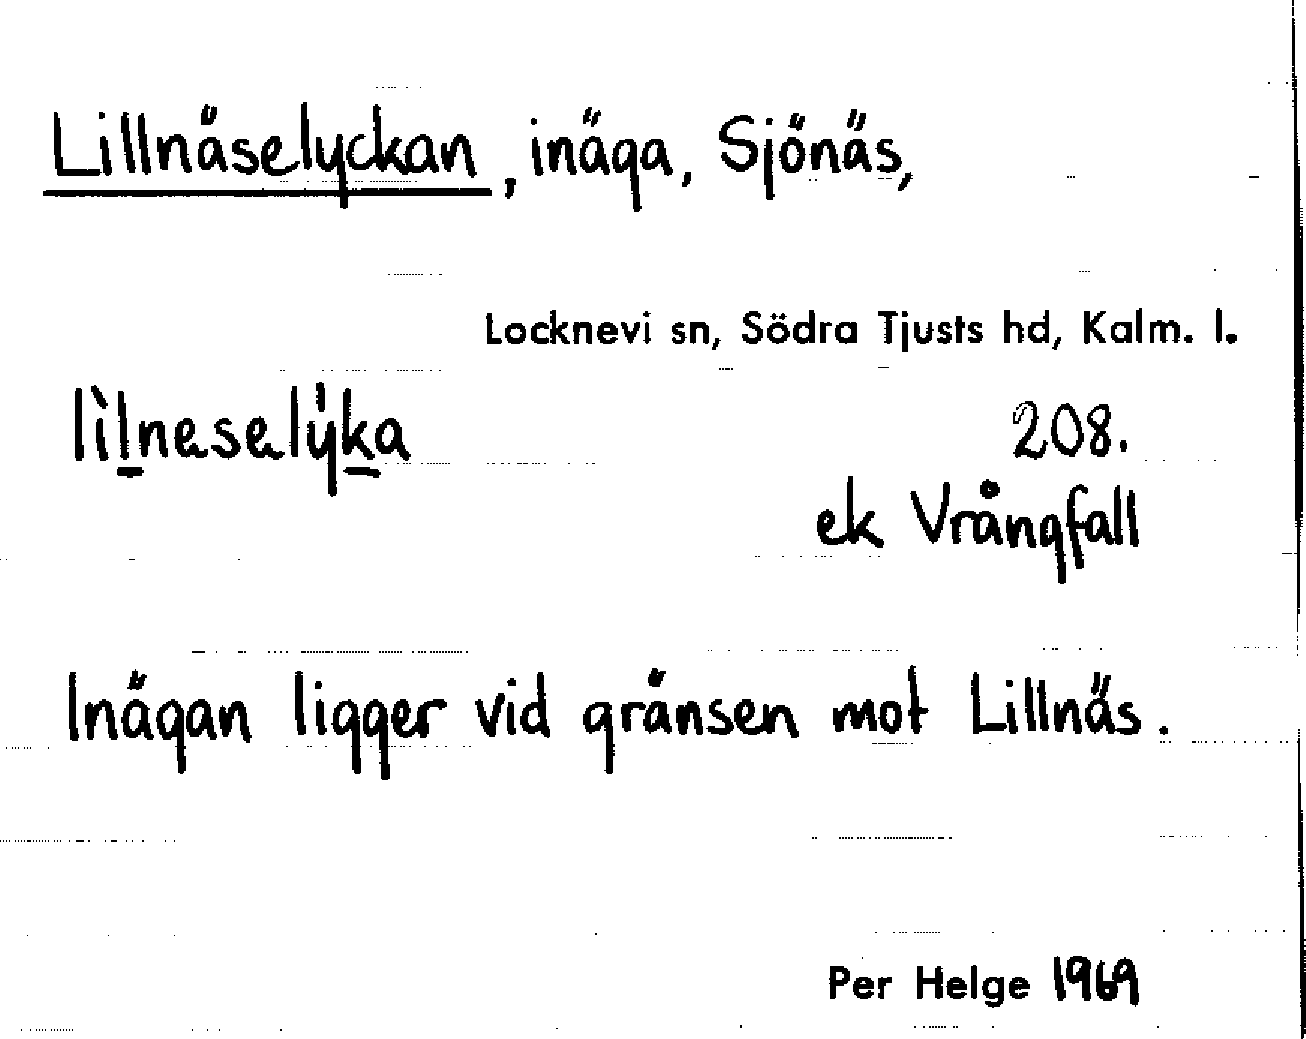 Lillnäselyckan, inäga, Sjönäs,
Locknevi sn, Södra Tjusts hd, Kalm. l.
lìl̲neselẏk̲a
208.
ek Vrångfall
Inägan ligger vid gränsen mot Lillnäs.
Per Helge 1969